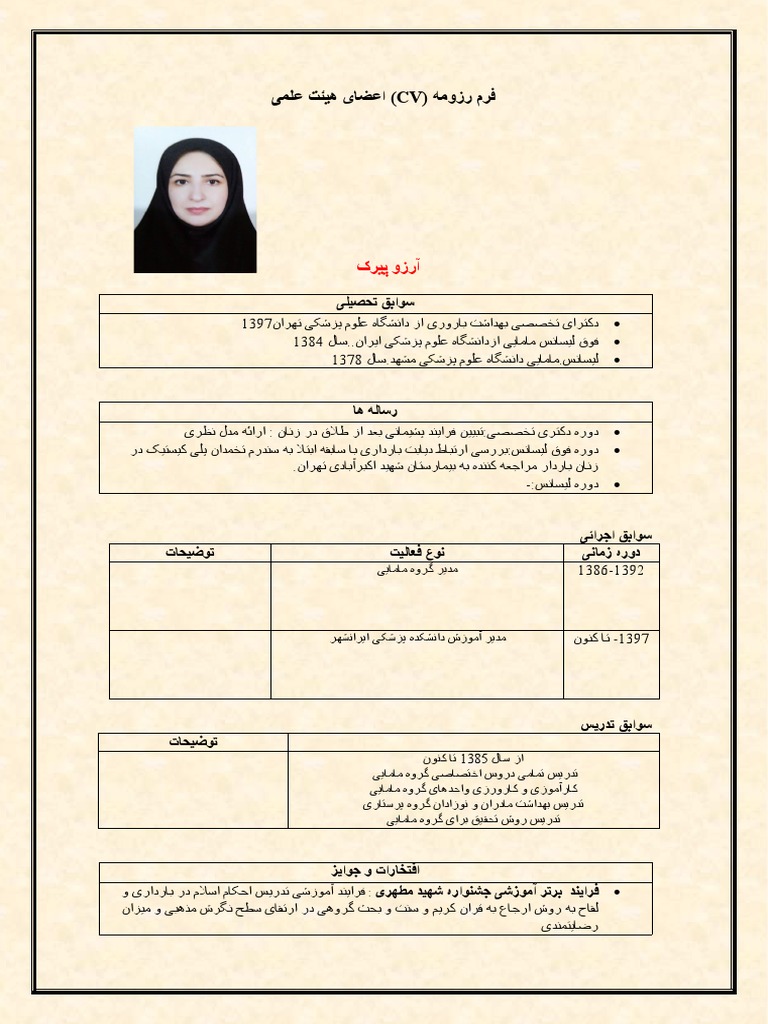 فرم رزومه (CV) اعضای هیئت علمی
آرزو پیرک
سوابق تحصیلی
دکترای تخصصی بهداشت باروری از دانشگاه علوم پزشکی تهران1397
فوق لیسانس مامایی ازدانشگاه علوم پزشکی ایران..سال 1384
لیسانس.مامایی دانشگاه علوم پزشکی مشهد.سال 1378
رساله ها
دوره دکتری تخصصی:تبیین فرایند پشیمانی بعد از طلاق در زنان : ارائه مدل نظری
دوره فوق لیسانس:بررسی ارتباط دیابت بارداری با سابقه ابتلا به سندرم تخمدان پلی کیستیک در
زنان باردار مراجعه کننده به بیمارستان شهید اکبرآبادی تهران.
دوره لیسانس:-
سوابق اجرائی
دوره زمانی نوع فعالیت توضیحات
1386-1392 مدیر گروه مامایی
1397- تا کنون مدیر آموزش دانشکده پزشکی ایرانشهر
سوابق تدریس
توضیحات
از سال 1385 تا کنون
تدریس تمامی دروس اختصاصی گروه مامایی
کارآموزی و کارورزی واحدهای گروه مامایی
تدریس بهداشت مادران و نوزادان گروه پرستاری
تدریس روش تحقیق برای گروه مامایی
افتخارات و جوایز
فرایند برتر آموزشی جشنواره شهید مطهری : فرایند آموزشی تدریس احکام اسلام در بارداری و
لقاح به روش ارجاع به قران کریم و سنت و بحث گروهی در ارتقای سطح نگرش مذهبی و میزان
رضایتمندی